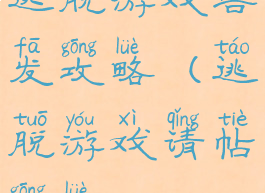 逃脱游戏善
fā gōng lüè táo
发攻略（逃
tuō yóu xì qǐng tiè
脱游戏请帖
gōng lüè